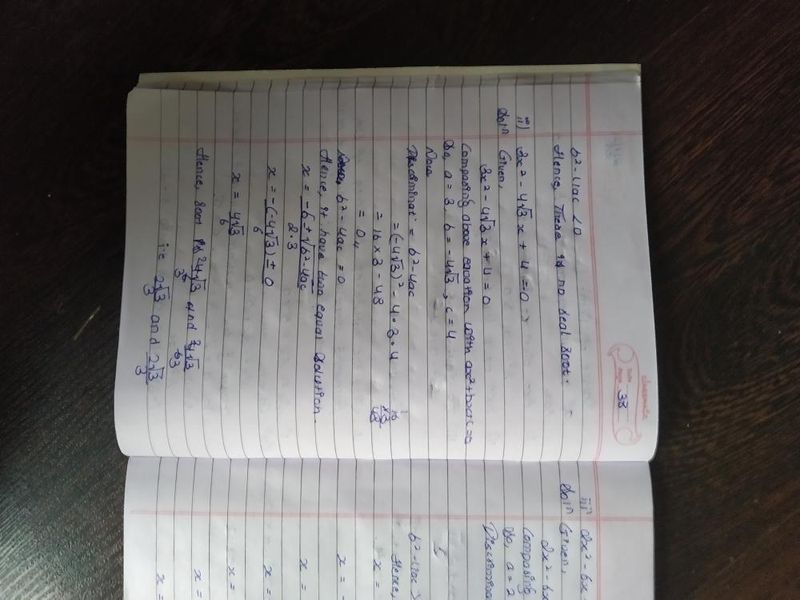 classmate
Date
Page 38
b² - 4ac < 0
Hence, There is no real root.
ii) 3x² - 4√3 x + 4 = 0
Solⁿ Given,
3x² - 4√3 x + 4 = 0
Comparing above equation with ax² + bx + c = 0
So, a = 3, b = -4√3, c = 4
Now
Discriminat = b² - 4ac
= (-4√3)² - 4·3·4
= 16 × 3 - 48
16
×3
48
= 0,,
b² - 4ac = 0
Hence, it have two equal solution.
x = -b ± √b² - 4ac
2·3
x = -(-4√3) ± 0
6
x = 4√3
6
Hence, root is 4√3 and 4√3
i.e 2√3 and 2√3
3 3
iii) 2x² - 6x
Solⁿ Given,
2x² - 6x
Comparing
So, a = 2
Discrimina
b² - 4ac >
Hence,
x =
x = -
x =
x =
x =
x =
x =